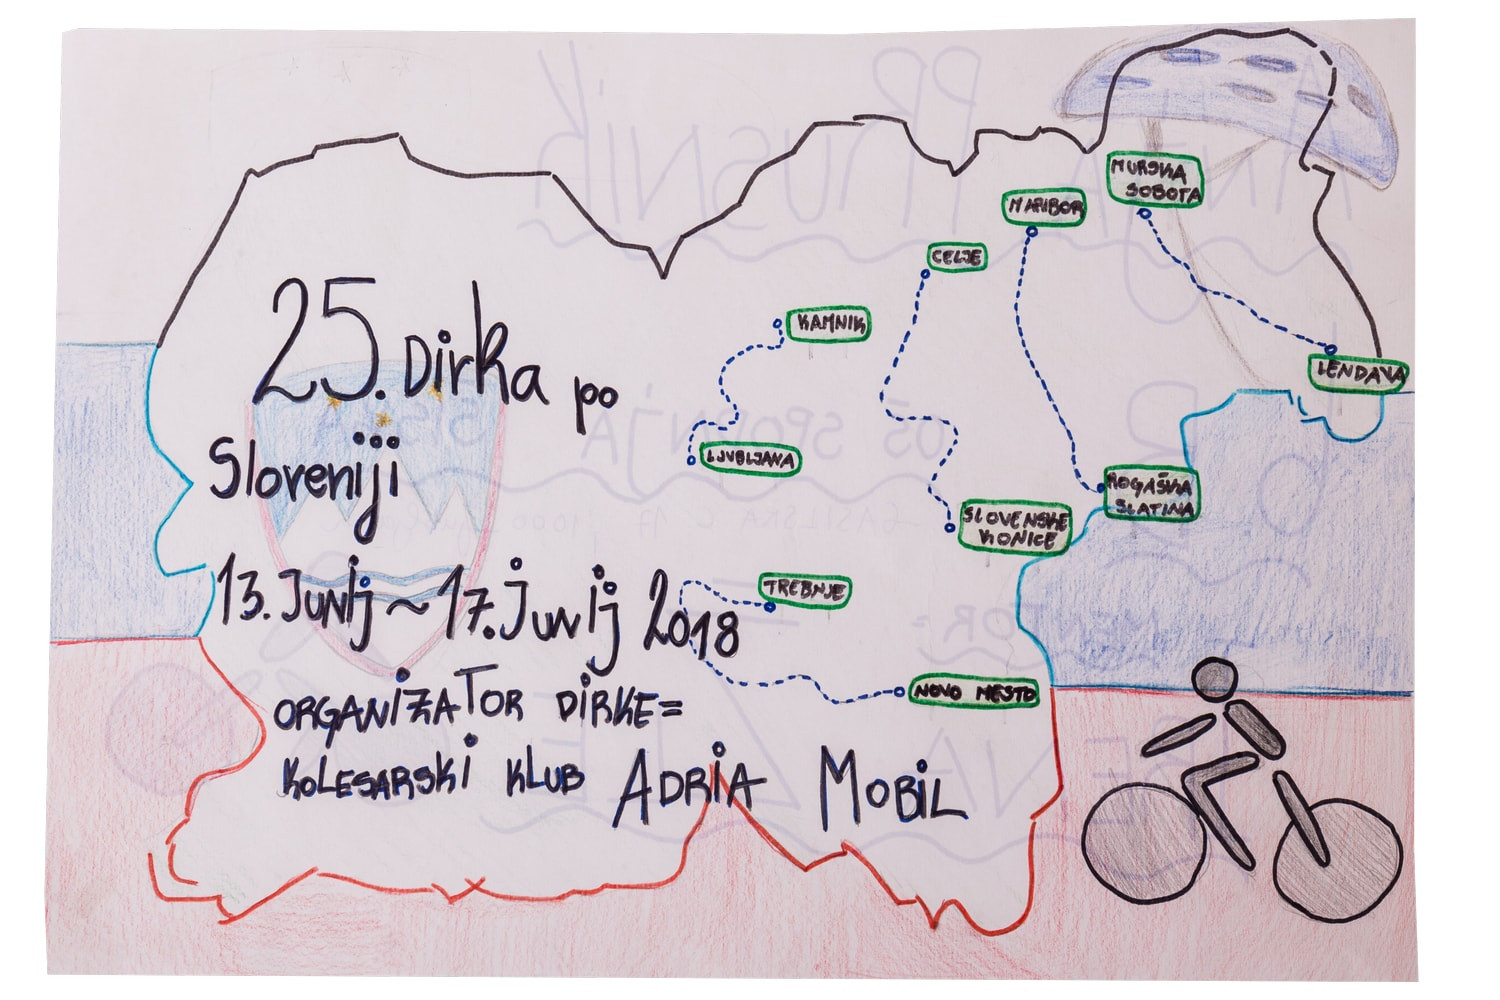 25. Dirka po
Sloveniji
13. Junij ~ 17. Junij 2018
ORGANIZATOR DIRKE=
KOLESARSKI KLUB ADRIA MOBIL
MURSKA
SOBOTA
MARIBOR
CELJE
KAMNIK
LENDAVA
LJUBLJANA
ROGAŠKA
SLATINA
SLOVENSKE
KONICE
TREBNJE
NOVO MESTO